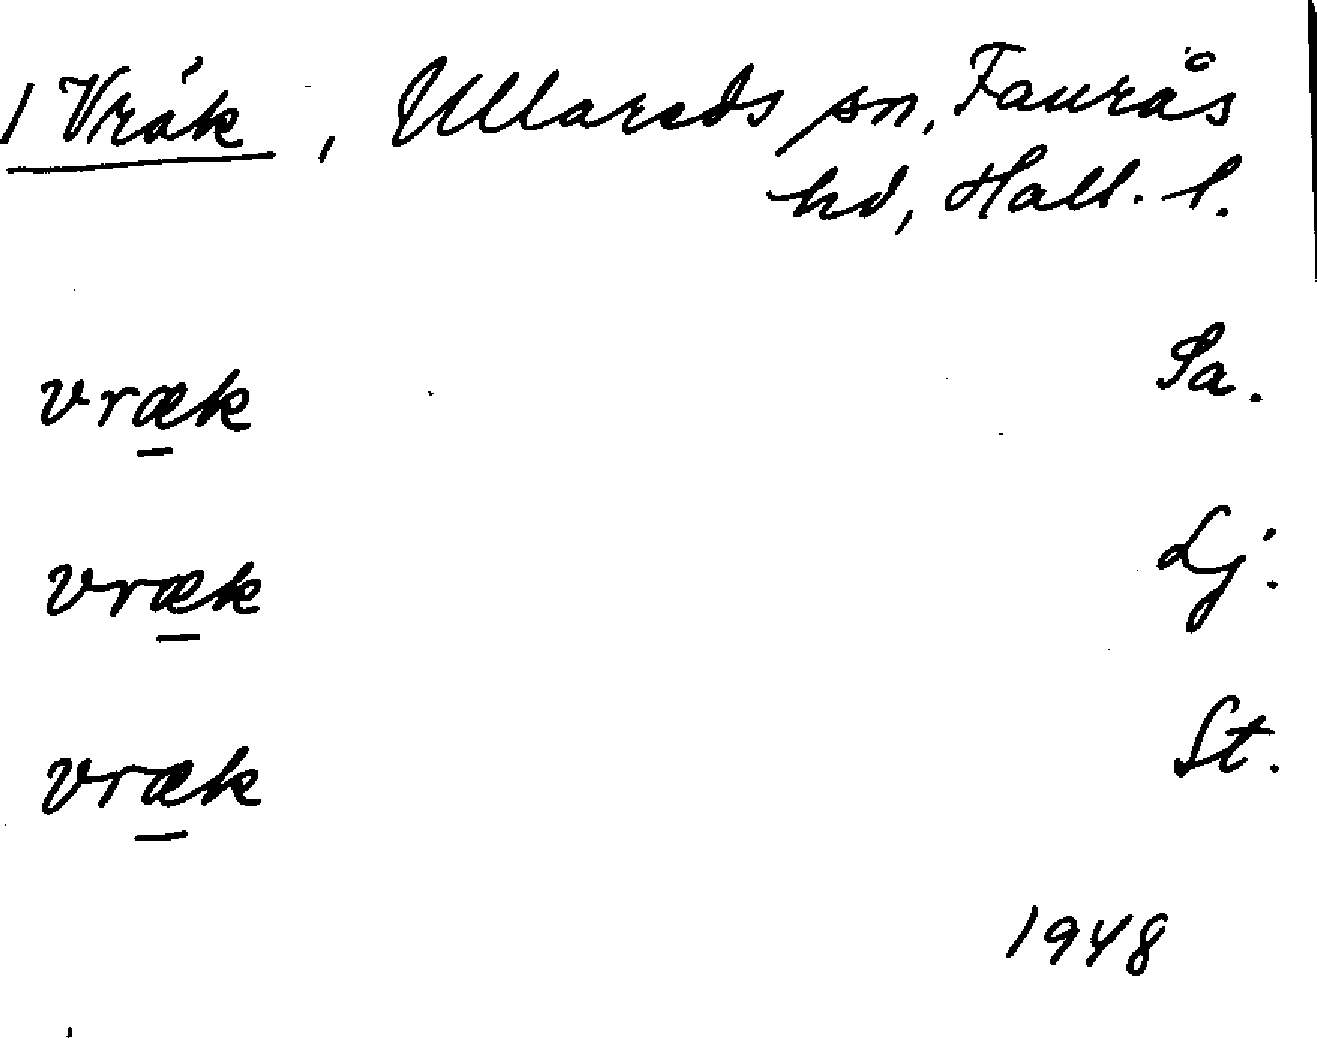 1 Vråk, Ullareds sn, Faurås
hd, Hall. l.
vræk Sa.
vræk Lj.
vræk St.
1948